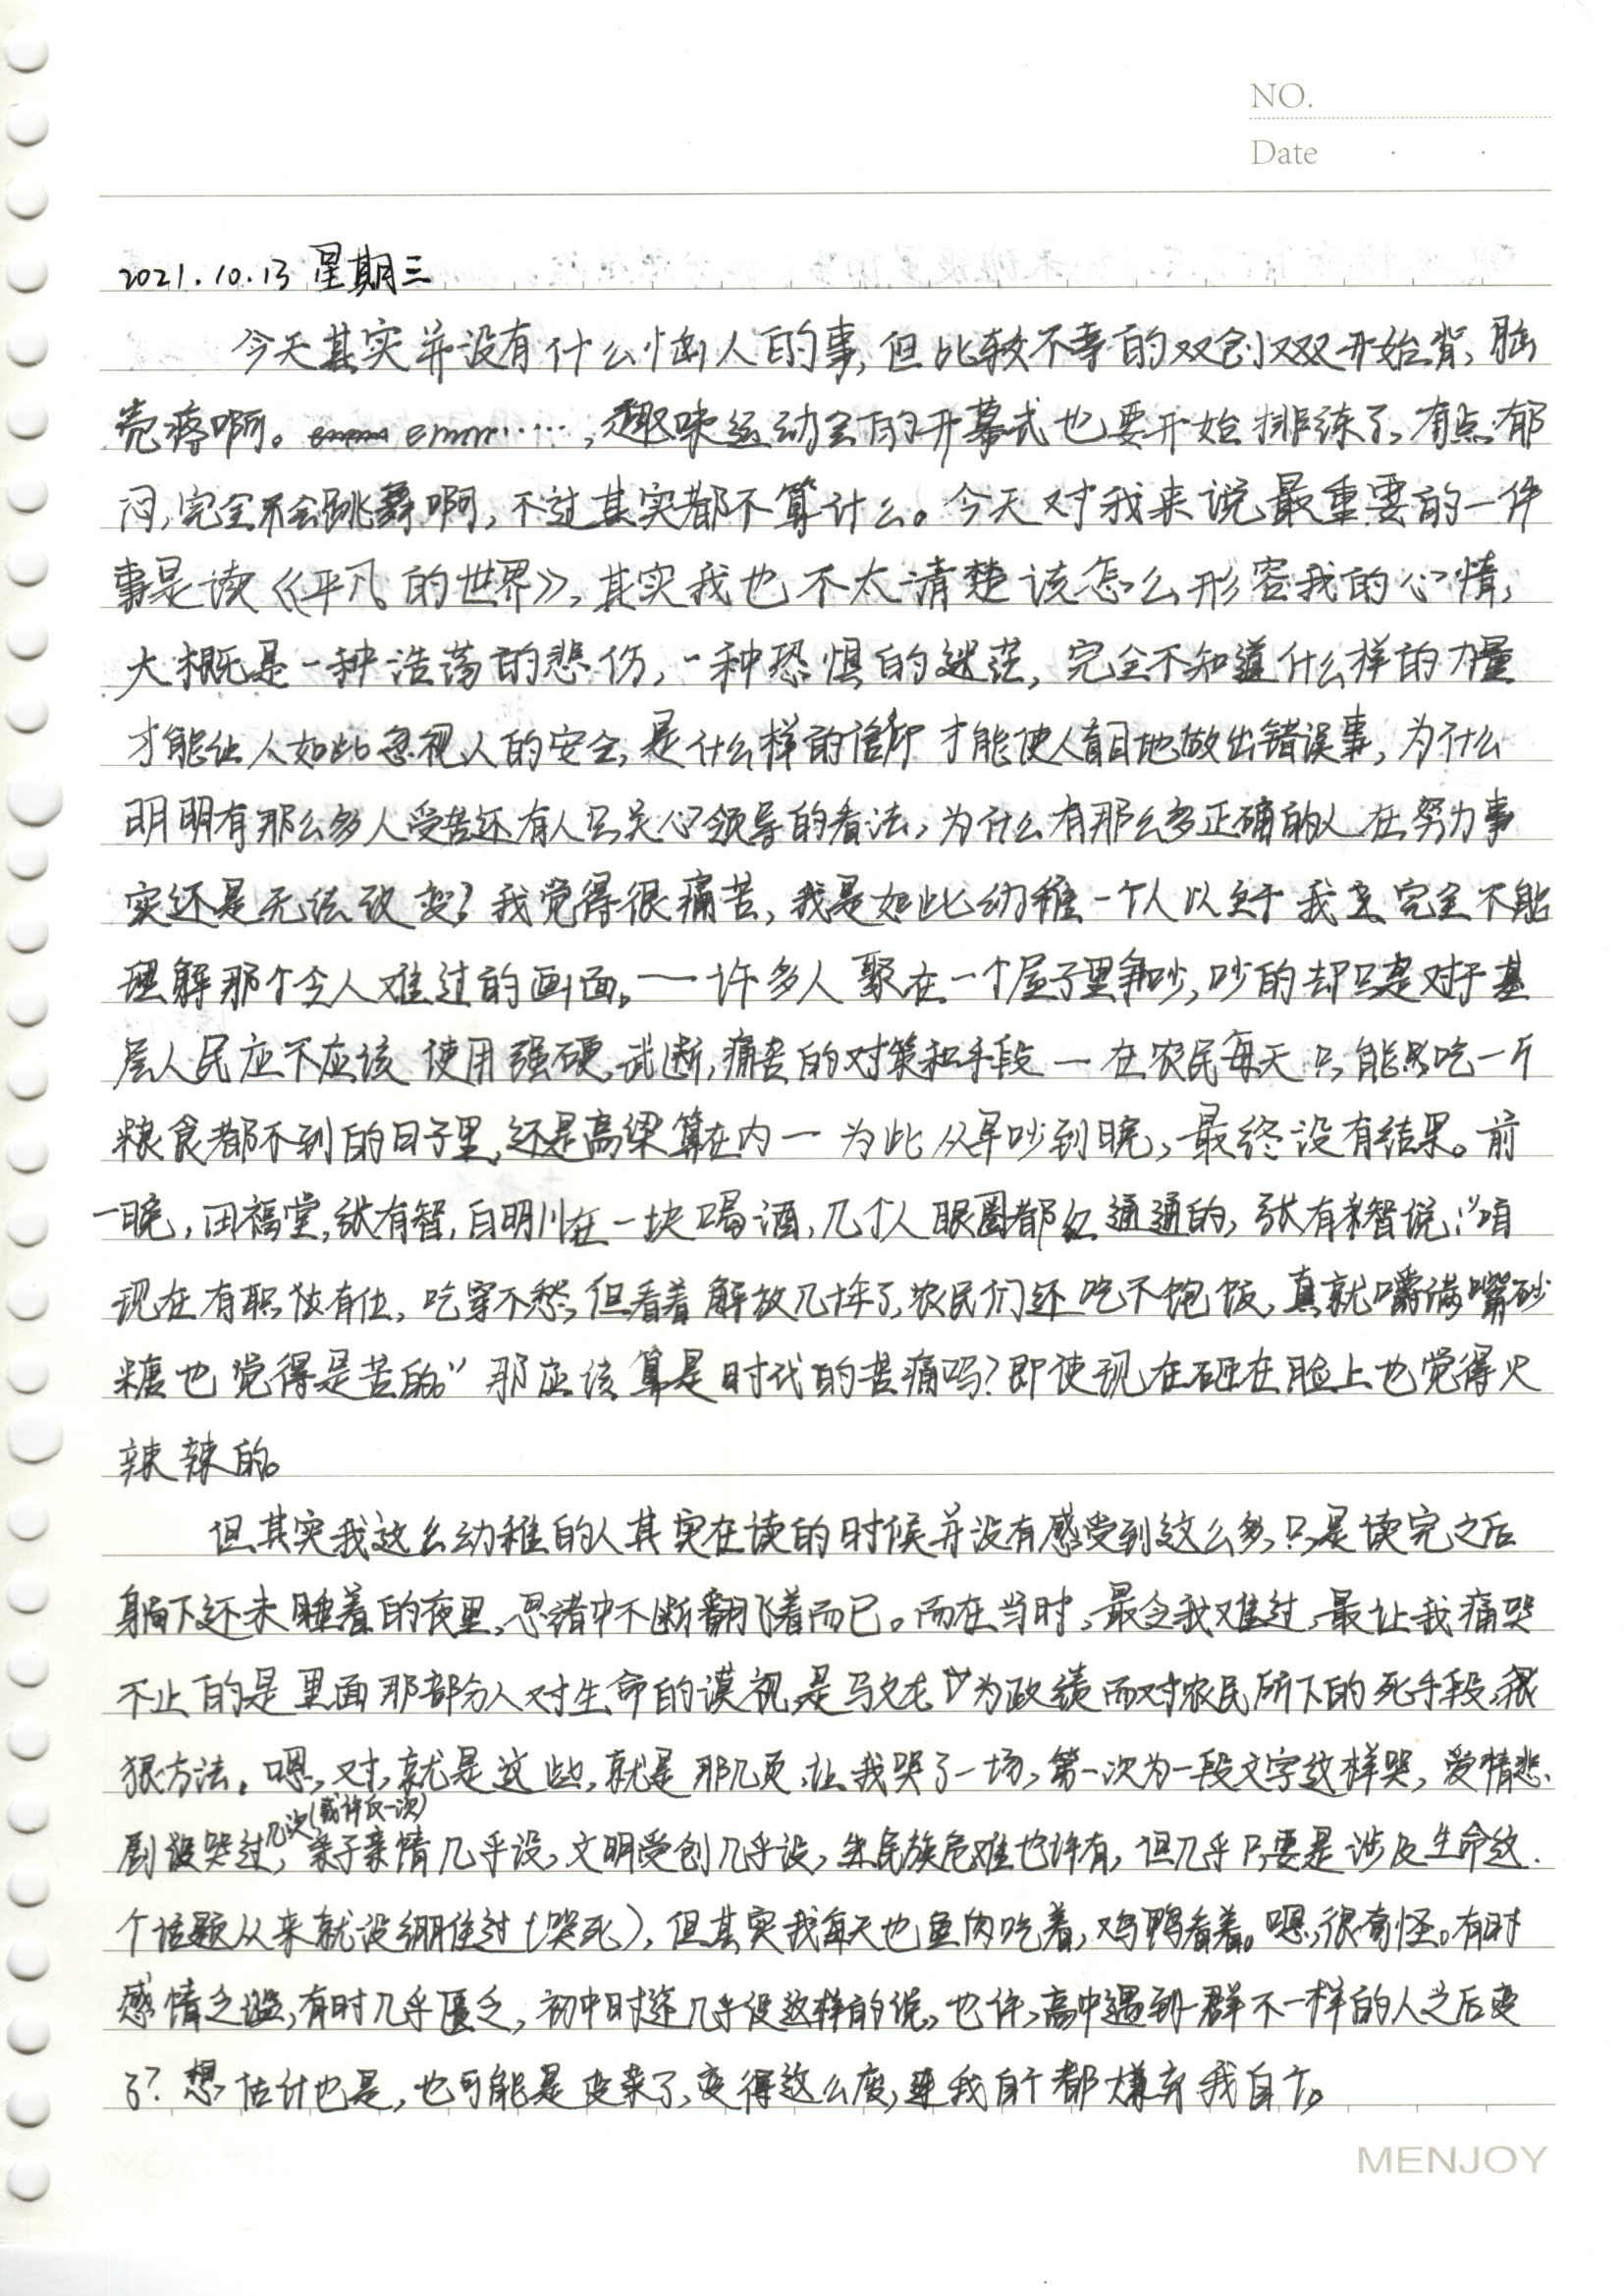 NO.
Date
2021.10.13 星期三
今天其实并没有什么恼人的事,但比较不幸的双创双双开始背,脑
壳疼啊。emm……,趣味运动会的开幕式也要开始排练了,有点郁
闷,完全不会跳舞啊,不过其实都不算什么。今天对我来说最重要的一件
事是读《平凡的世界》,其实我也不太清楚该怎么形容我的心情,
大概是一种浩荡的悲伤,一种恐惧的迷茫,完全不知道什么样的力量
才能让人如此忽视人的安全,是什么样的信仰才能使人盲目地做出错误事,为什么
明明有那么多人受苦还有人只关心领导的看法,为什么有那么多正确的人在努力事
实还是无法改变?我觉得很痛苦,我是如此幼稚一个人以至于我完全不能
理解那个令人难过的画面。——许多人聚在一个屋子里争吵,吵的却只是对于基
层人民应不应该使用强硬,武断,痛苦的对策和手段—在农民每天只能吃一斤
粮食都不到的日子里,还是高梁算在内—为此从早吵到晚,最终没有结果。前
一晚,田福堂,张有智,白明川在一块喝酒,几个人眼圈都红通通的,张有智说:“咱
现在有职位有仕,吃穿不愁,但看着解放几十年了,农民们还吃不饱饭,真就嚼满嘴砂
糖也觉得是苦的。”那应该算是时代的苦痛吗?即使现在砸在脸上也觉得火
辣辣的。
但其实我这么幼稚的人其实在读的时候并没有感受到这么多,只是读完之后
躺下还未睡着的夜里,思绪中不断翻飞着而已。而在当时,最令我难过,最让我痛哭
不止的是里面那部分人对生命的漠视,是马文龙为政绩而对农民所下的死手段,狠
狠方法。嗯,对,就是这些,就是那几页,让我哭了一场,第一次为一段文字这样哭,爱情悲
剧没哭过几次(或许仅一次),亲子亲情几乎没,文明受创几乎没,民族危难也许有,但几乎只要是涉及生命这
个话题从来就没绷住过(哭死),但其实我每天也鱼肉吃着,鸡鸭看着。嗯,很奇怪。有时
感情之滥,有时几乎匮乏,初中时还几乎没这样的说,也许,高中遇到一群不一样的人之后变
了?想,估计也是,也可能是变菜了,变得这么废,连我自个都嫌弃我自个。
MENJOY